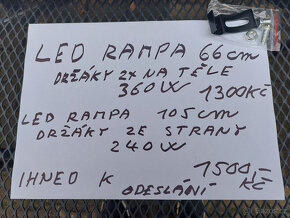 LED RAMPA 66cm
DRŽÁKY 2X NA TĚLE
360W 1300KČ
LED RAMPA 105cm
DRŽÁKY ZE STRANY
240W
1500,-
IHNED K ODESLÁNÍ KČ